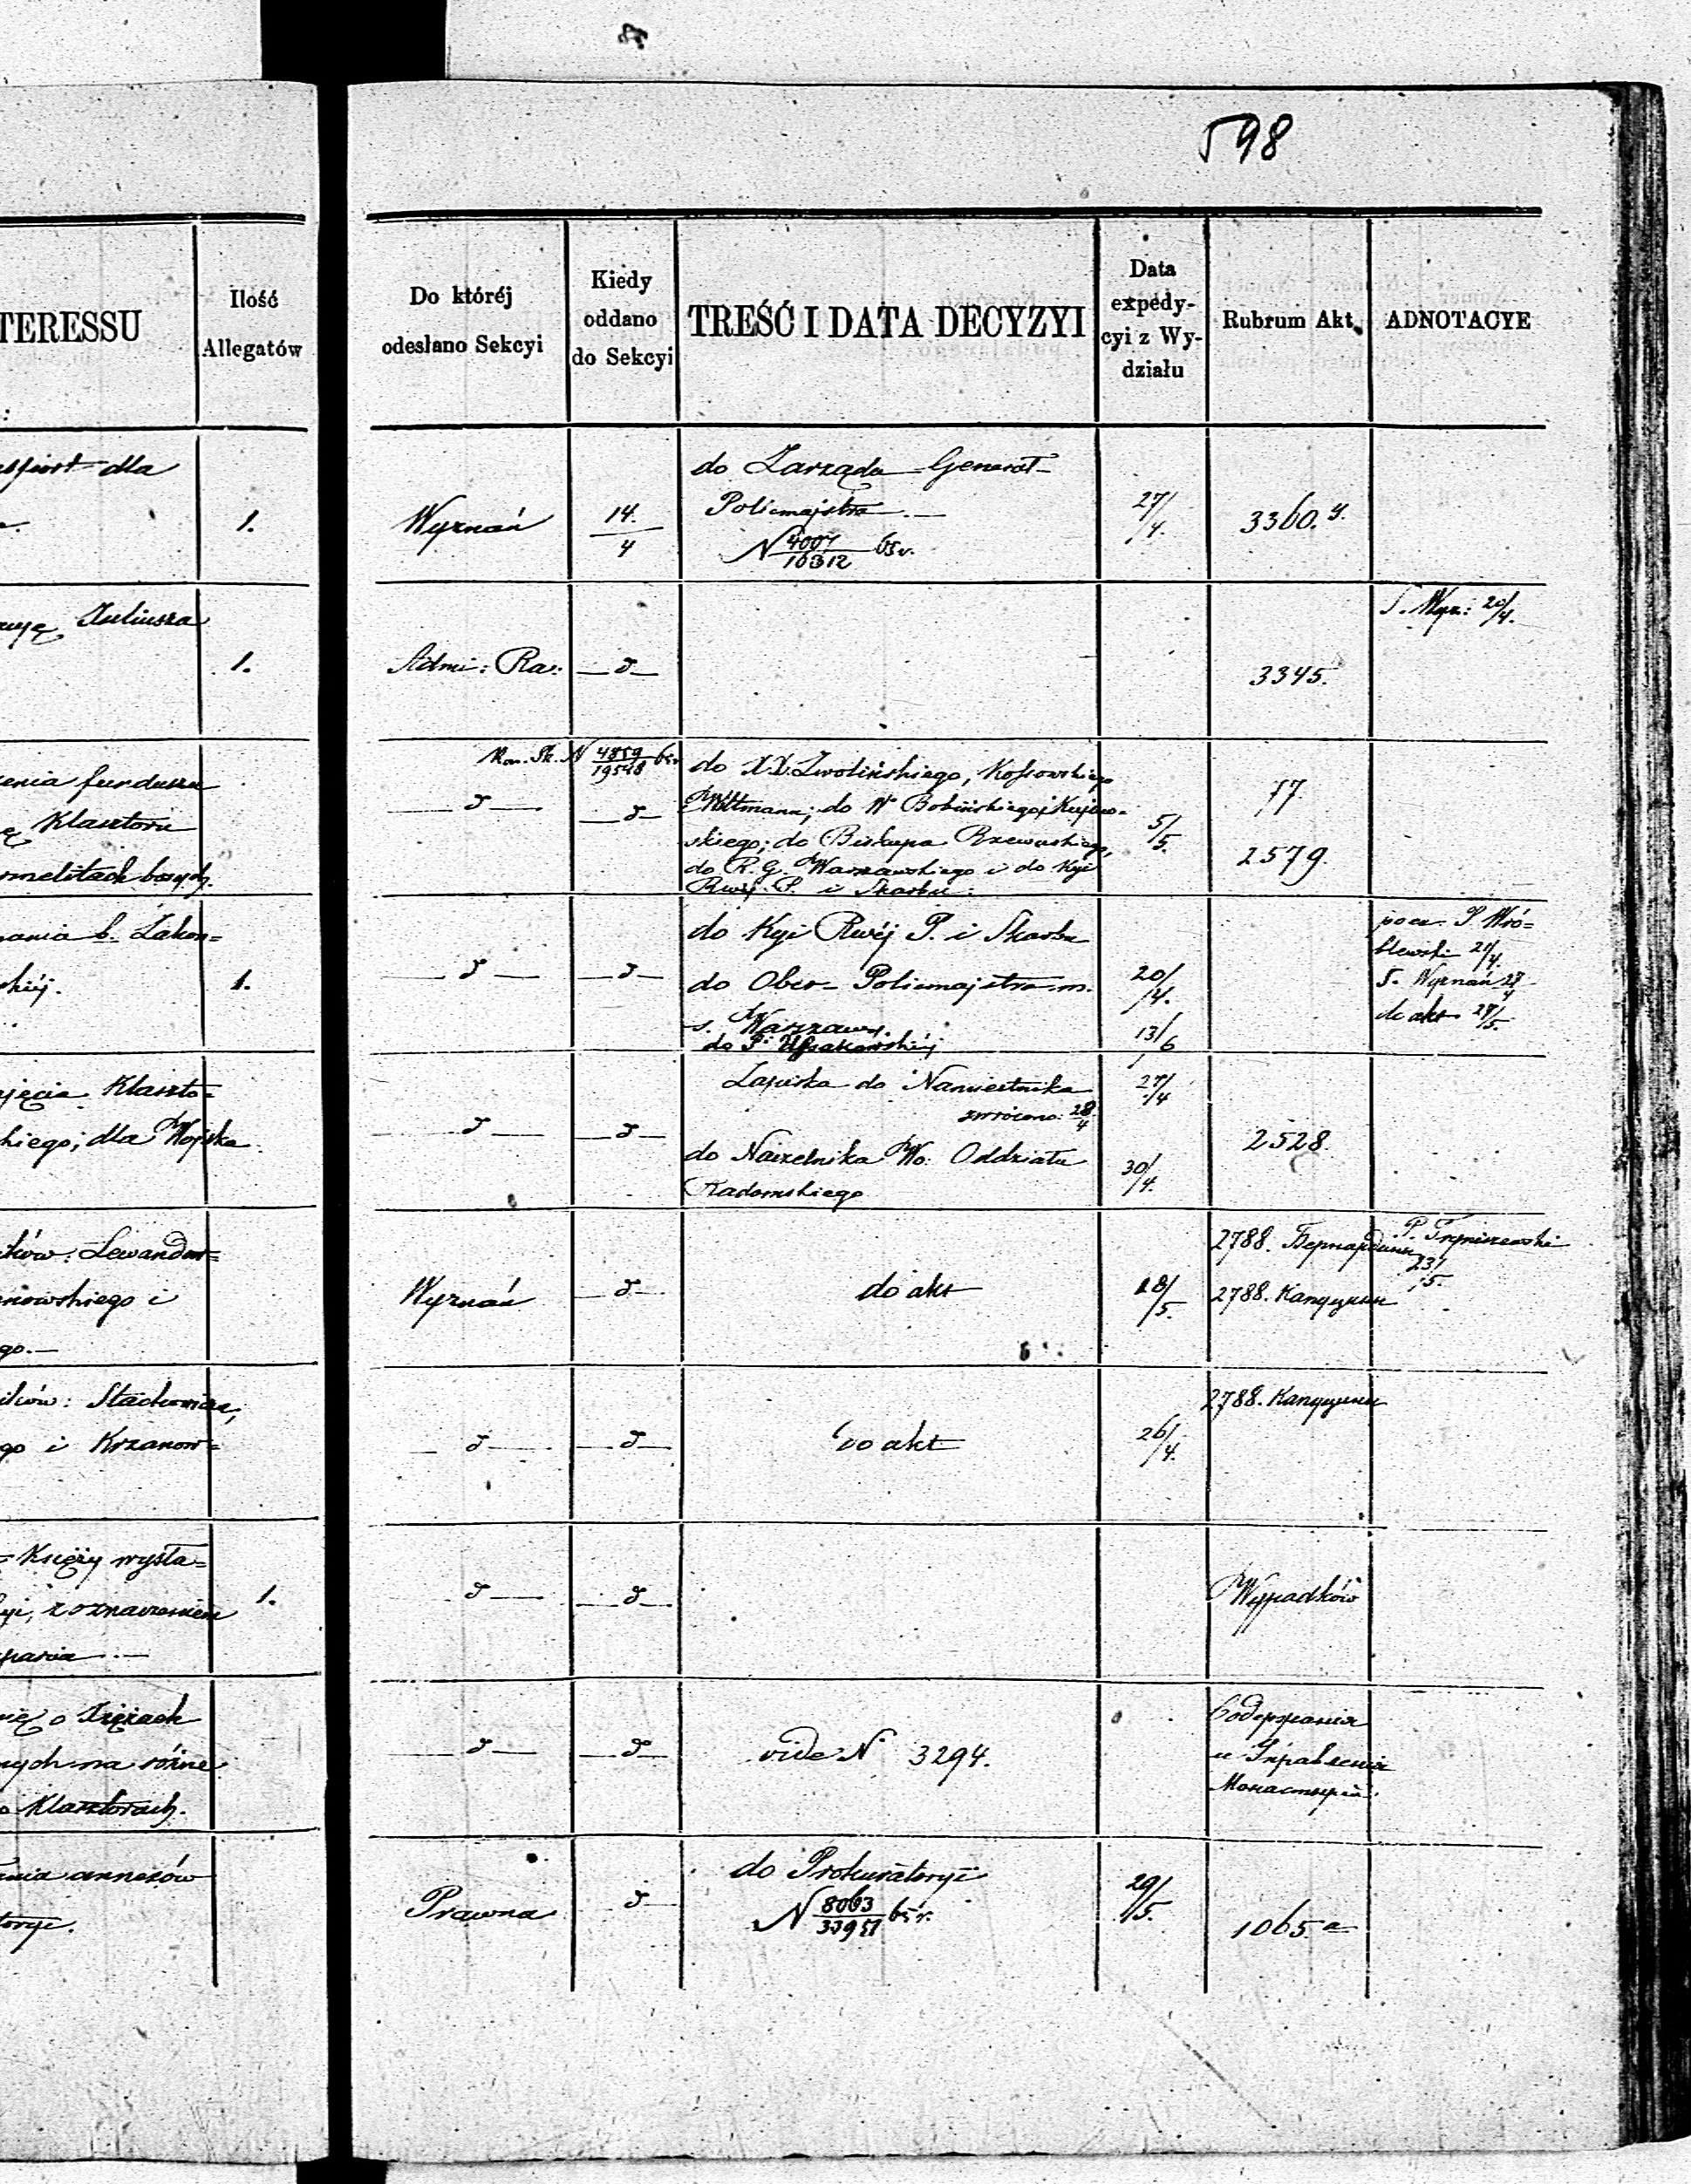 598
TERESSU
Ilość
Allegatów
Do któréj
odesłano Sekcyi
Kiedy
oddano
do Sekcyi
TREŚĆ I DATA DECYZYI
Data
expedy-
cyi z Wy-
działu
Rubrum Akt
ADNOTACYE
dla
1.
Wyznań
14.
4
do Zarządu Generał-
Policmajstra
N 4007/10312 65 r.
27/4.
3360. y.
Juliusza
1.
Admi: Ra:
— d —
3345.
20/4.
enia funduszu
Klasztoru
rmelitach bosych.
N 4859/19548 65 r
— d —
— d —
do XX. Zwolińskiego, Kossowskiego
Wittmann; do W Bobińskiego i Kujaw-
skiego; do Biskupa Rzewuskiego,
do R. G. Warszawskiego i do Kyi
Rwéj P. i Skarbu.
5/5.
17
2579.
ania b. Zakon=
skiéj.
1.
— d —
— d —
do Kyi Rwéj P. i Skarbu
do Ober-Policmajstra m.
s. Warszawy.
do P.
20/4.
13/6
P Wró=
blewski 21/4.
Wyznań 27/4
do akt 27/5.
jęcia Klaszto=
kiego; dla Wojska
— d —
— d —
Zapiska do Namiestnika
zwrócono: 28/4
do Naczelnika Wo: Oddziału
Radomskiego
27/4
30/4.
2528.
ików: Lewandow=
nowskiego i
go.—
Wyznań
— d —
do akt
18/5.
2788. Бернардины
2788. Капуцины
23/5.
ików: Stachowicza,
go i Krzanow=
— d —
— d —
do akt
26/4.
2788. Капуцины
Księży wysła=
yi, z oznaczeniem
1.
— d —
— d —
Wypadków
o Księżach
nych na różne
o Klasztorach.
— d —
— d —
vide N 3294.
Содержания
и Управления
Монастырей.
ania annexów
toryi.
Prawna
— d —
do Prokuratoryi
N 8063/33951 65 r.
29/5.
1065 a